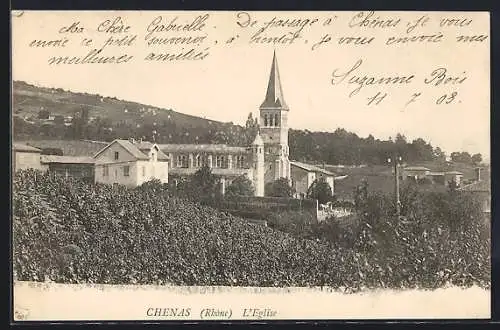 Ma Chère Gabrielle. De passage à Chénas, je vous
envoie ce petit souvenir, à bientôt, je vous envoie mes
meilleures amitiés
Suzanne Bois
11 - 7 03.
CHENAS (Rhône) L'Eglise